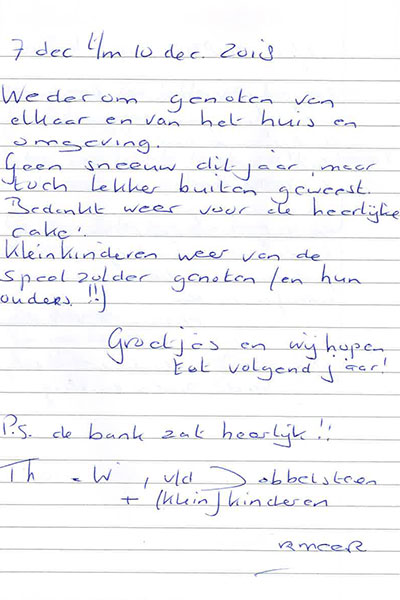 7 dec t/m 10 dec. 2018
Wederom genoten van
elkaar en van het huis en
omgeving.
Geen sneeuw dit jaar, maar
toch lekker buiten geweest.
Bedankt weer voor de heerlijke
cake!
Kleinkinderen weer van de
speelzolder genoten (en hun
ouders !!)
Groetjes en wij hopen
tot volgend jaar!
P.S. de bank zat heerlijk!!
Th + W, v/d Dobbelsteen
+ (klein)kinderen